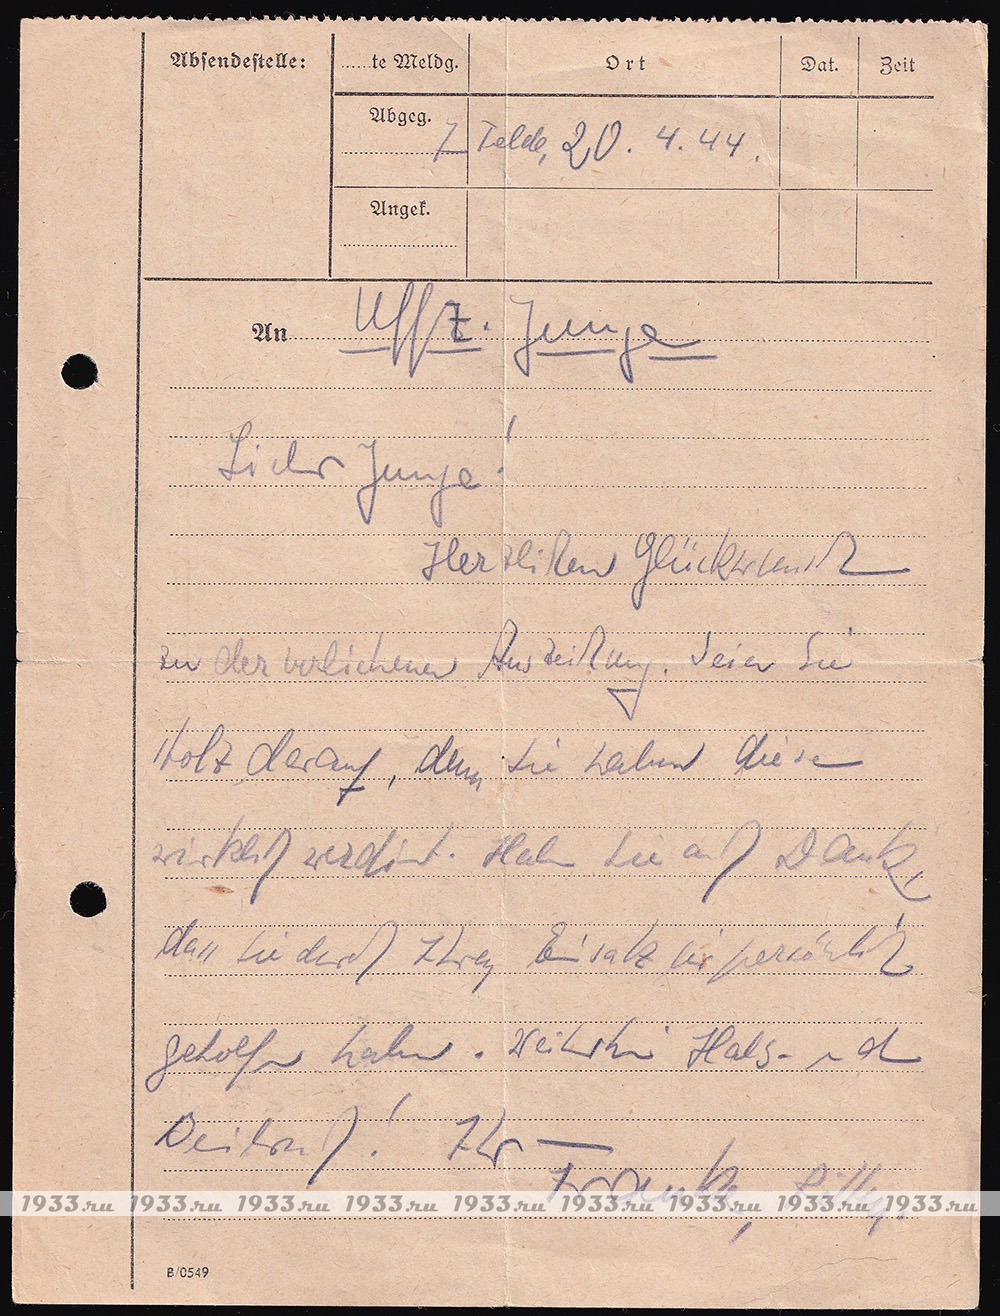 Absendestelle: ......te Meldg. Ort Dat. Zeit
Abgeg. Felde, 20. 4. 44.
Angek.
An Uffz. Junge
Lieber Junge!
Herzlichen Glückwunsch
zu der verliehenen Auszeichnung. Seien Sie
stolz darauf, denn Sie haben diese
wirklich verdient. Haben Sie auch Dank,
dass Sie durch Ihren Einsatz mir persönlich
geholfen haben. Weiterhin Hals- und
Beinbruch! Ihr
1933.ru 1933.ru 1933.ru 1933.ru 1933.ru 1933.ru 1933.ru 1933.ru 1933.ru
B/0549